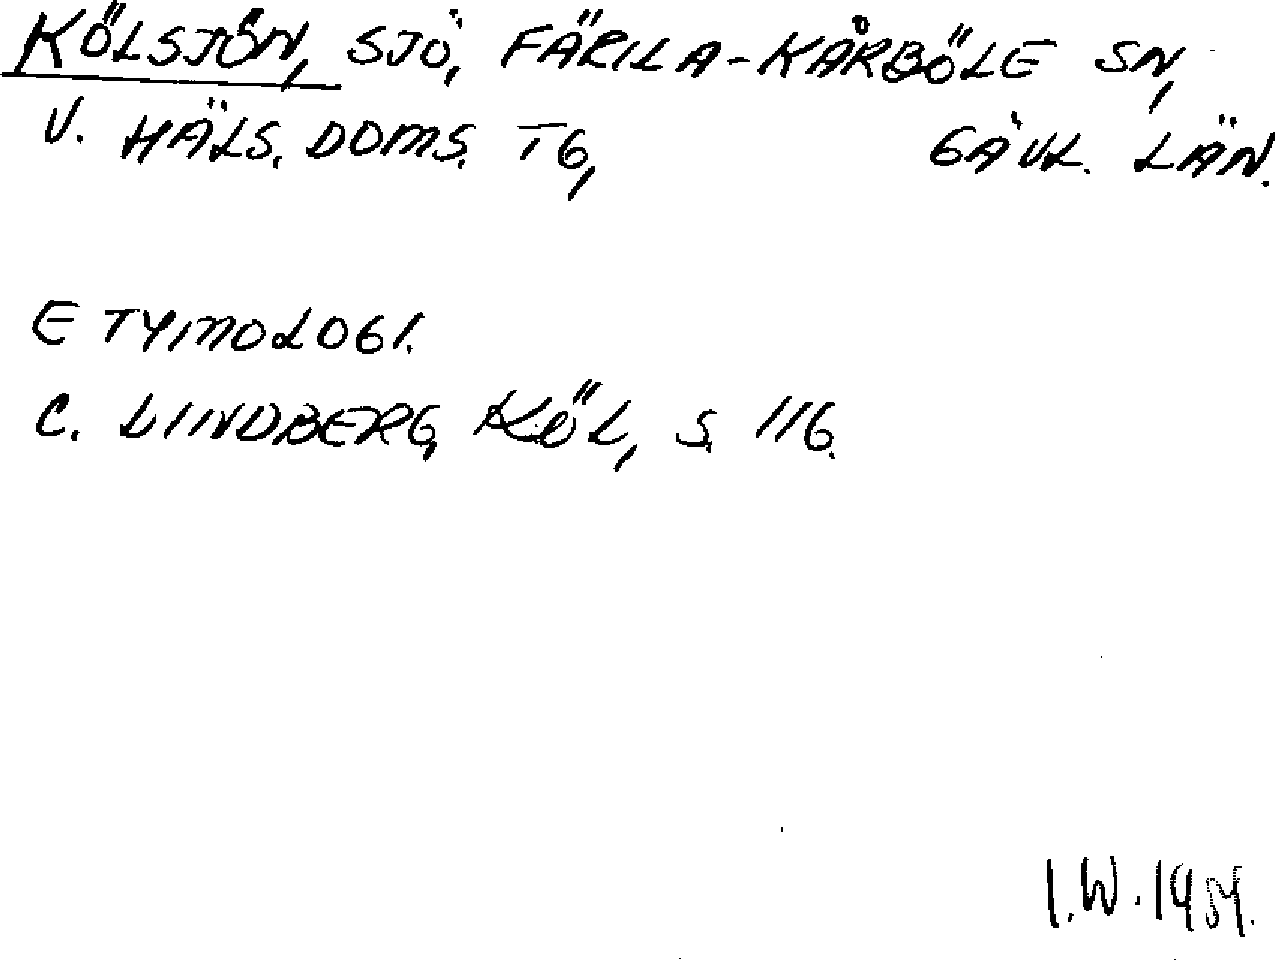 KÖLSJÖN, SJÖ, FÄRILA-KÅRBÖLE SN,
V. HÄLS. DOMS. TG, GÄVL. LÄN.
ETYMOLOGI.
C. LINDBERG, KÖL, S. 116.
I.W. 1954.